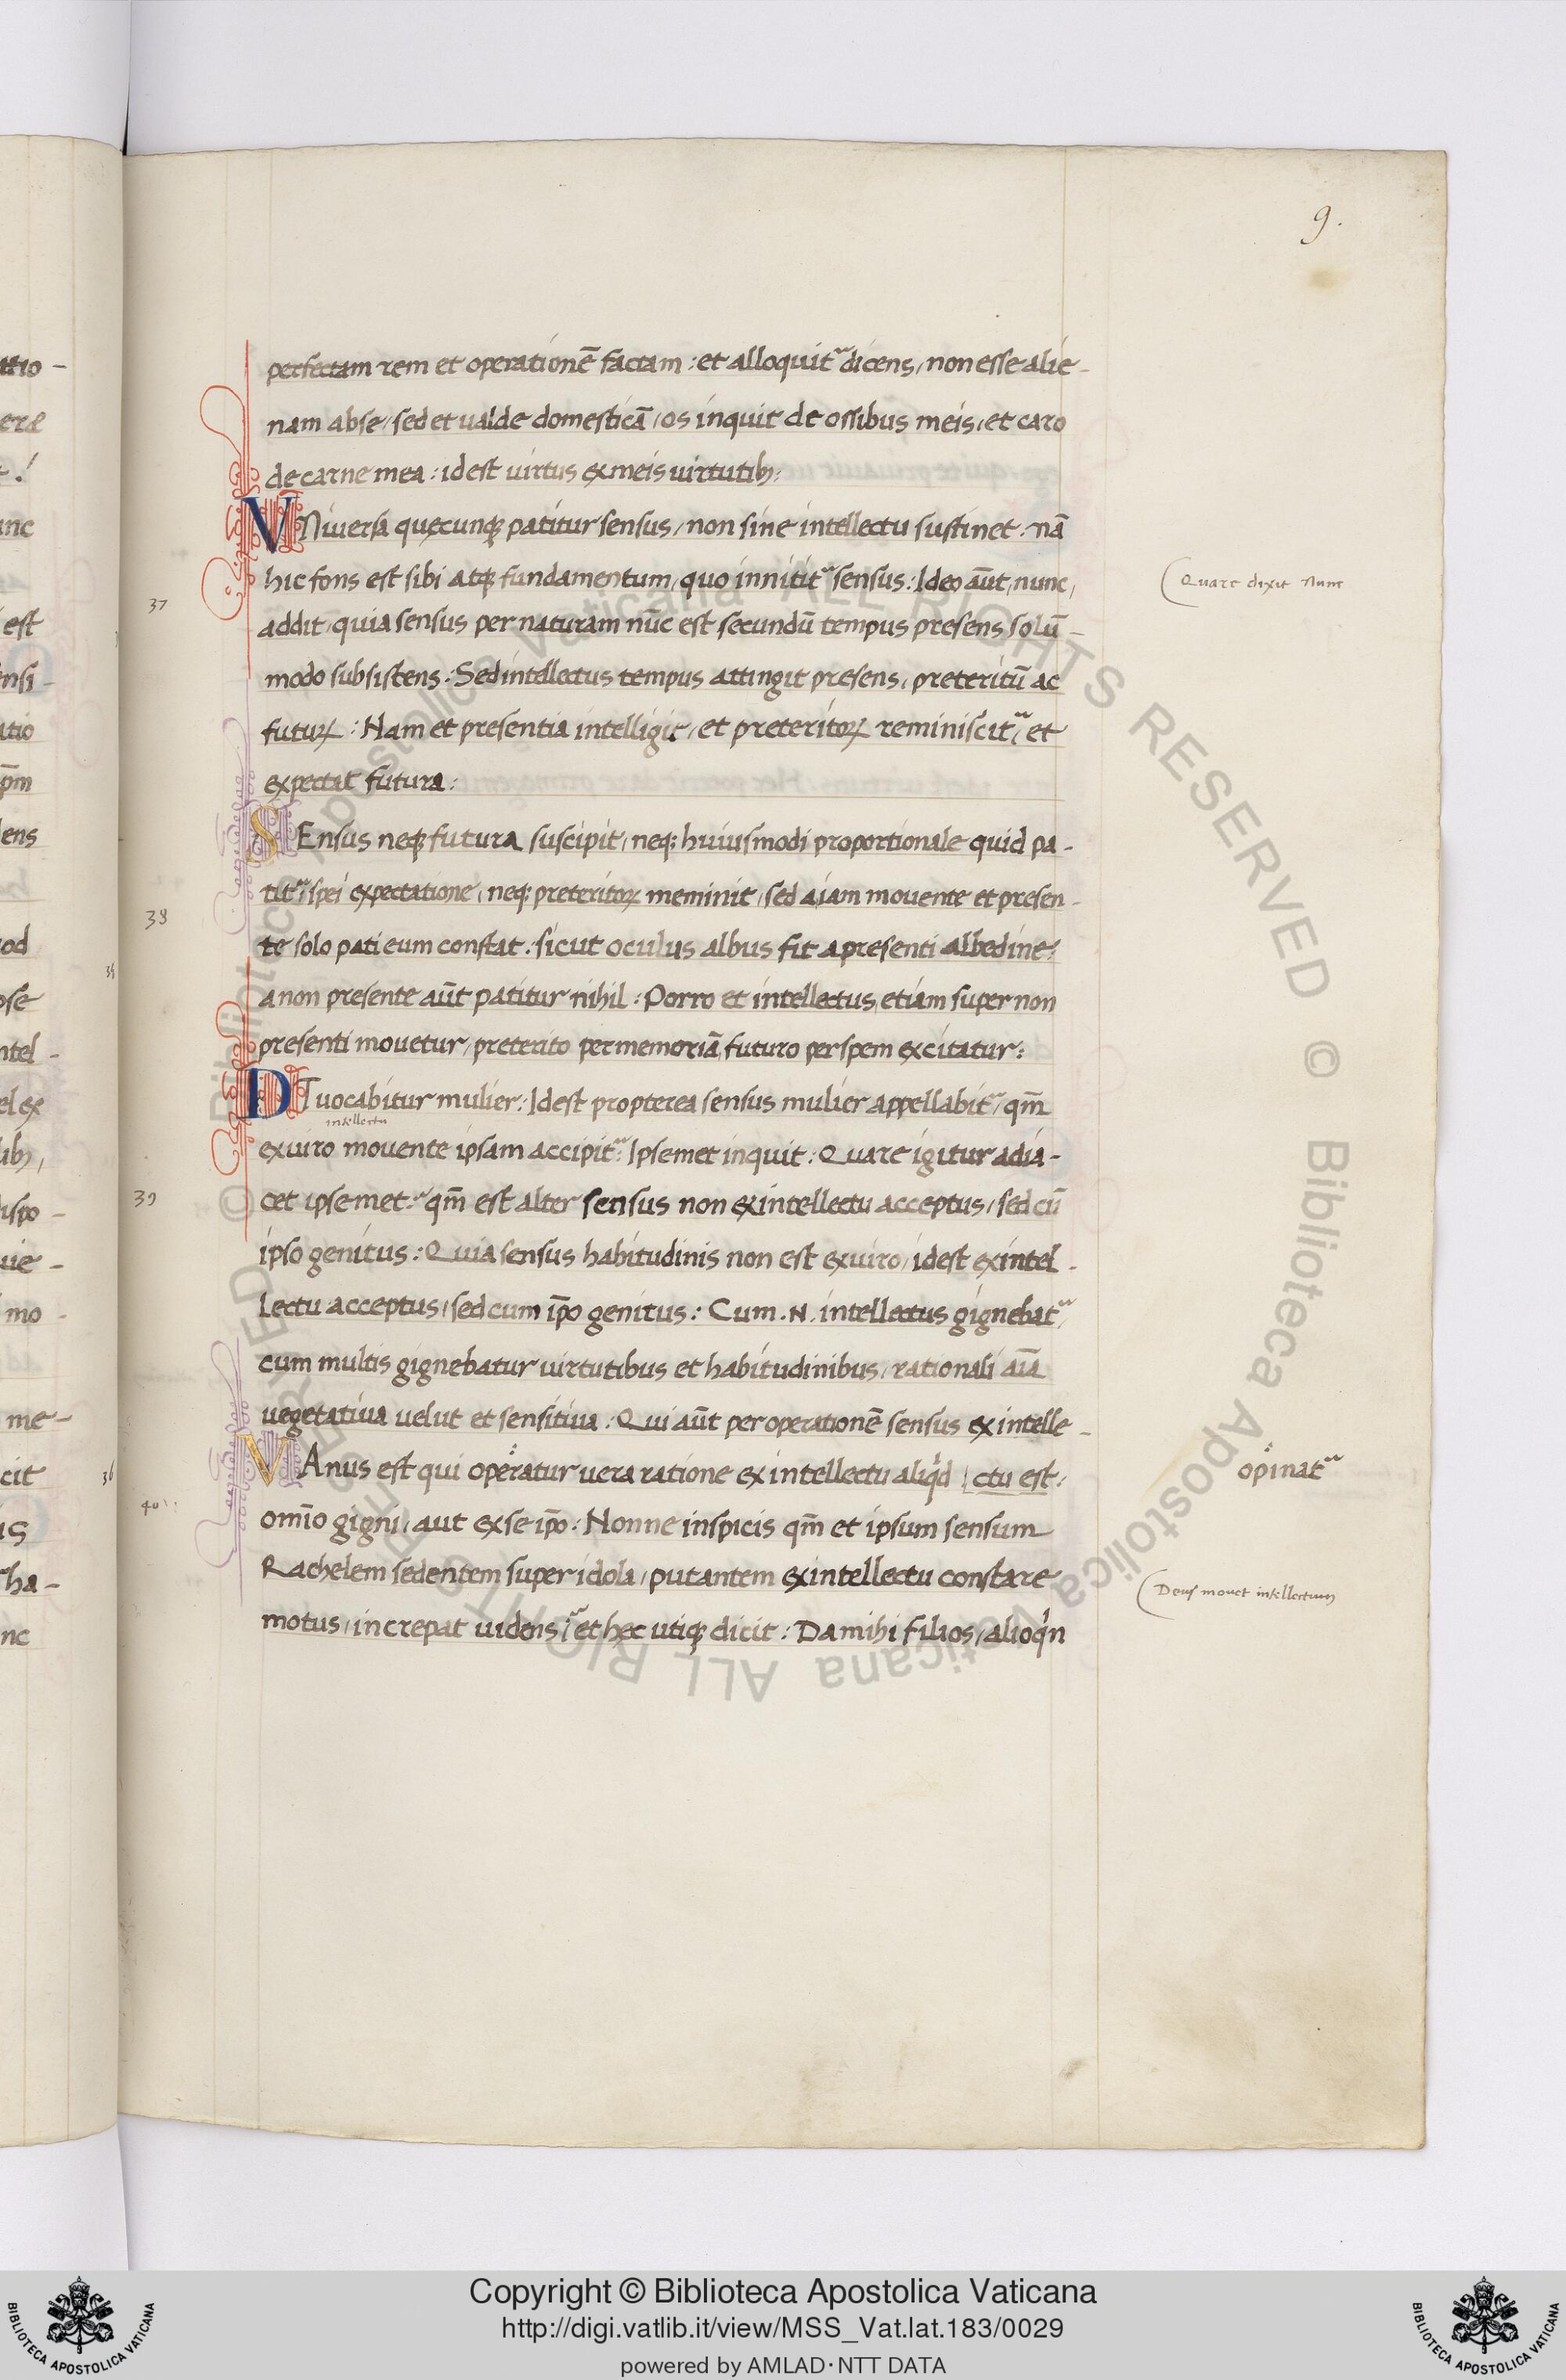 9.
perfectam rem et operationē factam : et alloquit᷑ dicens, non esse alie-
nam abse, sed et ualde domesticā, os inquit de ossibus meis, et caro
decarne mea : idest uirtus exmeis uirtutibꝫ :
VNiuersa quecunqꝫ patitur sensus, non sine intellectu sustinet : nā
hic fons est sibi atqꝫ fundamentum, quo innitit᷑ sensus : Ideo aūt, nunc,
Quare dixit Nunc
37
addit, quia sensus per naturam nūc est secundū tempus presens solū-
modo subsistens : Sed intellectus tempus attingit presens, preteritū ac
futuꝝ : Nam et presentia intelligit, et preteritoꝝ reminiscit᷑, et
expectat futura :
SEnsus neqꝫ futura suscipit, neqꝫ huiusmodi proportionale quid pa-
tit᷑ spei expectatione, neqꝫ preteritoꝝ meminit, sed aīam mouente et presen-
38
te solo pati eum constat : sicut oculus albus fit apresenti albedine :
anon presente aūt patitur nihil : Porro et intellectus etiam super non
presenti mouetur, preterito per memoriā, futuro per spem excitatur :
DI uocabitur mulier : Idest propterea sensus mulier appellabit᷑, qm̄
intellectu
exuiro mouente ipsam accipit᷑ : Ipsemet inquit : Quare igitur adia-
39
cet ipsemet : qm̄ est alter sensus non exintellectu acceptus, sed cū
ipso genitus : Quia sensus habitudinis non est exuiro, idest exintel-
lectu acceptus, sed cum ip̄o genitus : Cum .N. intellectus gignebat᷑,
cum multis gignebatur uirtutibus et habitudinibus, rationali aīa
uegetatiua uelut et sensitiua : Qui aūt per operationē sensus ex intelle-
VAnus est qui operatur uera ratione ex intellectu aliqd | ctu est :
opinat᷑
40
om̄io gigni, aut exse ip̄o : Nonne inspicis qm̄ et ipsum sensum
Rachelem sedentem super idola, putantem exintellectu constare
Deus mouet intellectum
motus, increpat uidens, et hec utiqꝫ dicit : Da mihi filios, alioqn
ttio-
ere
unc
est
ensi-
atio
p̄m
dens
od
35
ose
ntel-
el ex
libꝫ,
dispo-
uie-
mo-
me-
cit
36
is
ha-
nc
© Biblioteca Apostolica Vaticana ALL RIGHTS RESERVED © Biblioteca Apostolica Vaticana ALL RIGHTS RESERVED
Copyright © Biblioteca Apostolica Vaticana
http://digi.vatlib.it/view/MSS_Vat.lat.183/0029
powered by AMLAD·NTT DATA
BIBLIOTECA APOSTOLICA VATICANA
BIBLIOTECA APOSTOLICA VATICANA